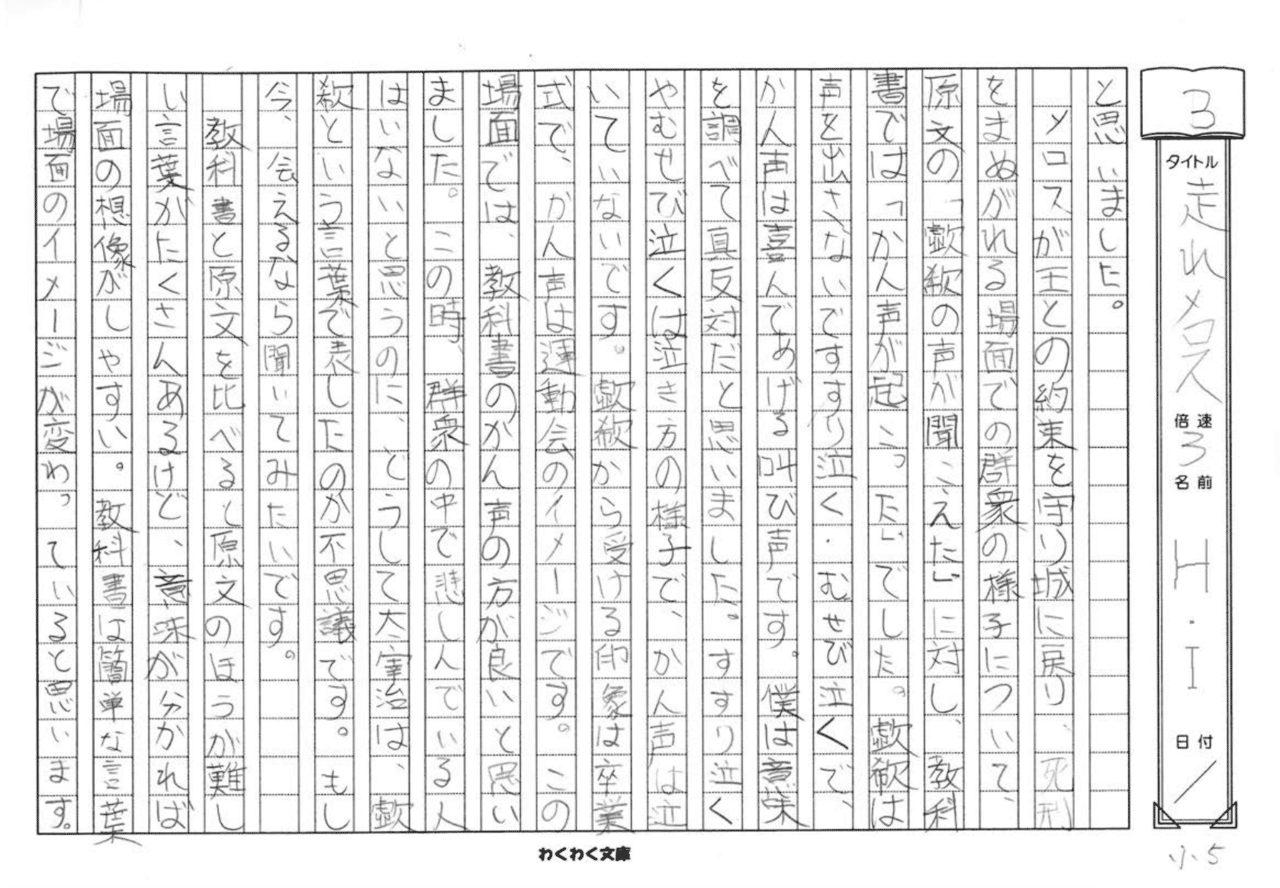 3
タイトル
走れメロス
倍速
3
名前
H.I
日付
/
小5
と思いました。
メロスが王との約束を守り城に戻り、死刑
をまぬがれる場面での群衆の様子について、
原文の「歔欷の声が聞こえた」に対し、教科
書では「かん声が起こった」でした。歔欷は
声を出さないですすり泣く・むせび泣くで、
かん声は喜んであげる叫び声です。僕は意味
を調べて真反対だと思いました。すすり泣く
やむせび泣くは泣き方の様子で、かん声は泣
いていないです。歔欷から受ける印象は卒業
式で、かん声は運動会のイメージです。この
場面では、教科書のかん声の方が良いと思い
ました。この時、群衆の中で悲しんでいる人
はいないと思うのに、どうして太宰治は、歔
欷という言葉で表したのか不思議です。もし
今、会えるなら聞いてみたいです。
教科書と原文を比べると原文のほうが難し
い言葉がたくさんあるけど、意味が分かれば
場面の想像がしやすい。教科書は簡単な言葉
で場面のイメージが変わっていると思います。
わくわく文庫